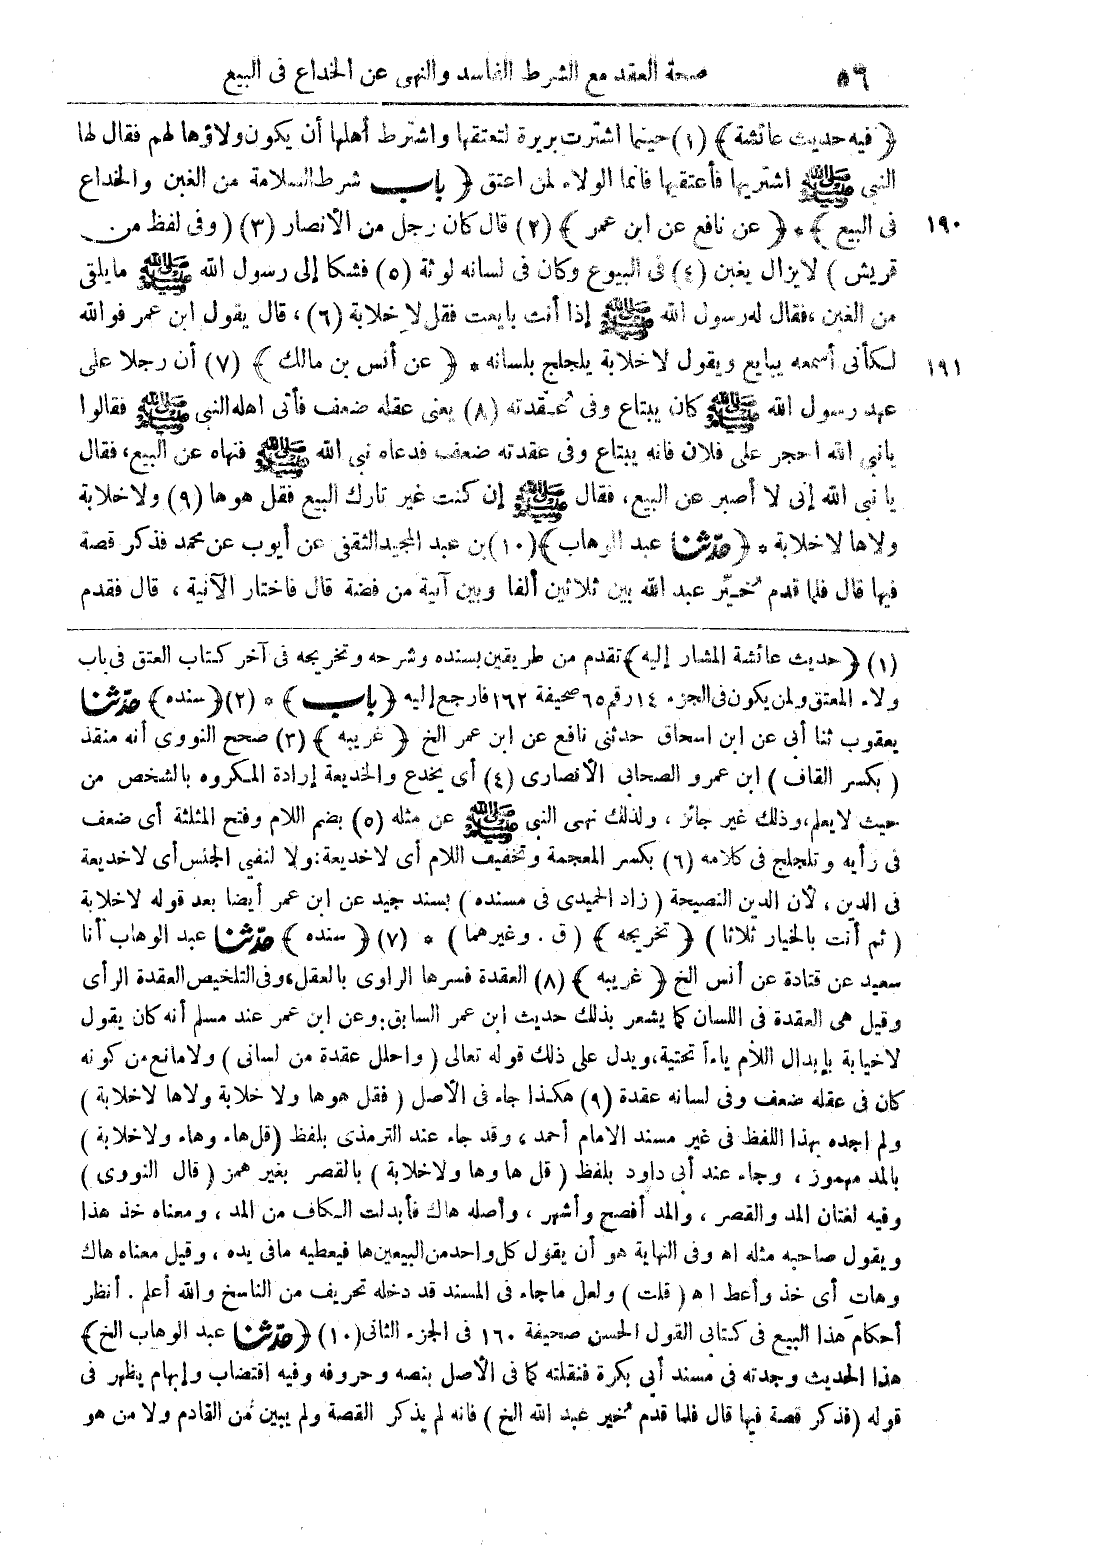 ٥٦ صحة العقد مع الشرط الفاسد والنهى عن الخداع فى البيع
﴿ فيه حديث عائشة ﴾ (١) حينما اشترت بريرة لتعتقها واشترط أهلها أن يكون ولاؤها لهم فقال لها
النبى ﷺ اشتريها فأعتقيها فانما الولاء لمن اعتق ﴿ باب شرط السلامة من الغبن والخداع
١٩٠ فى البيع ﴾ * ﴿ عن نافع عن ابن عمر ﴾ (٢) قال كان رجل من الأنصار (٣) (وفى لفظ من
قريش ) لا يزال يغبن (٤) فى البيوع وكان فى لسانه لوثة (٥) فشكا إلى رسول الله ﷺ ما يلقى
من الغبن ، فقال له رسول الله ﷺ إذا أنت بايعت فقل لا خلابة (٦) ، قال يقول ابن عمر فو الله
١٩١ لكأنى أسمعه يبايع ويقول لا خلابة يلجلج بلسانه * ﴿ عن أنس بن مالك ﴾ (٧) أن رجلا على
عهد رسول الله ﷺ كان يبتاع وفى عُقدته (٨) يعنى عقله ضعف فأتى اهله النبى ﷺ فقالوا
يا نبى الله احجر على فلان فانه يبتاع وفى عقدته ضعف فدعاه نبى الله ﷺ فنهاه عن البيع ، فقال
يا نبى الله إنى لا أصبر عن البيع ، فقال ﷺ إن كنت غير تارك البيع فقل هوها (٩) ولا خلابة
ولاها لا خلابة * ﴿ حدّثنا عبد الوهاب ﴾ (١٠) بن عبد المجيد الثقفى عن أيوب عن محمد فذكر قصة
فيها قال فلما قدم خُيّر عبد الله بين ثلاثين ألفا وبين آنية من فضة قال فاختار الآنية ، قال فقدم
(١) ﴿ حديث عائشة المشار إليه ﴾ تقدم من طريقين بسنده وشرحه وتخريجه فى آخر كتاب العتق فى باب
ولاء المعتق ولمن يكون فى الجزء ١٤ رقم ٦٥ صحيفة ١٦٢ فارجع إليه ﴿ باب ﴾ * (٢) ﴿ سنده ﴾ حدّثنا
يعقوب ثنا أبى عن ابن اسحاق حدثنى نافع عن ابن عمر الخ ﴿ غريبه ﴾ (٣) صحح النووى أنه منقذ
( بكسر القاف ) ابن عمرو الصحابى الأنصارى (٤) أى يخدع والخديعة إرادة المكروه بالشخص من
حيث لا يعلم ، وذلك غير جائز ، ولذلك نهى النبى ﷺ عن مثله (٥) بضم اللام وفتح المثلثة أى ضعف
فى رأيه وتلجلج فى كلامه (٦) بكسر المعجمة وتخفيف اللام أى لا خديعة : ولا لنفي الجنس أى لا خديعة
فى الدين ، لأن الدين النصيحة ( زاد الحميدى فى مسنده ) بسند جيد عن ابن عمر أيضا بعد قوله لا خلابة
( ثم أنت بالخيار ثلاثا ) ﴿ تخريجه ﴾ ( ق . وغيرهما ) * (٧) ﴿ سنده ﴾ حدّثنا عبد الوهاب أنا
سعيد عن قتادة عن أنس الخ ﴿ غريبه ﴾ (٨) العقدة فسرها الراوى بالعقل ، وفى التلخيص العقدة الرأى
وقيل هى العقدة فى اللسان كما يشعر بذلك حديث ابن عمر السابق : وعن ابن عمر عند مسلم أنه كان يقول
لا خيابة بإبدال اللام ياءاً تحتية ، ويدل على ذلك قوله تعالى ( واحلل عقدة من لسانى ) ولا مانع من كونه
كان فى عقله ضعف وفى لسانه عقدة (٩) هكذا جاء فى الأصل ( فقل هوها ولا خلابة ولاها لا خلابة )
ولم اجده بهذا اللفظ فى غير مسند الامام أحمد ، وقد جاء عند الترمذى بلفظ ( قل هاء وهاء ولا خلابة )
بالمد مهموز ، وجاء عند أبى داود بلفظ ( قل ها وها ولا خلابة ) بالقصر بغير همز ( قال النووى )
وفيه لغتان المد والقصر ، والمد أفصح وأشهر ، وأصله هاك فأبدلت الكاف من المد ، ومعناه خذ هذا
ويقول صاحبه مثله اه وفى النهاية هو أن يقول كل واحد من البيعين ها فيعطيه ما فى يده ، وقيل معناه هاك
وهات أى خذ وأعط اه ( قلت ) ولعل ما جاء فى المسند قد دخله تحريف من الناسخ والله أعلم . أنظر
أحكام هذا البيع فى كتابى القول الحسن صحيفة ١٦٠ فى الجزء الثانى (١٠) ﴿ حدّثنا عبد الوهاب الخ ﴾
هذا الحديث وجدته فى مسند أبى بكرة فنقلته كما فى الأصل بنصه وحروفه وفيه اقتضاب وإبهام يظهر فى
قوله ( فذكر قصة فيها قال فلما قدم خُير عبد الله الخ ) فانه لم يذكر القصة ولم يبين مَن القادم ولا من هو